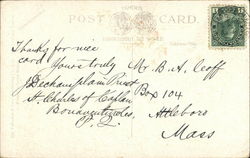 POST CARD.
Thanks for nice
card Yours truly
J Dechamplain Priest
St. Charles of Caplan
Bonaventure
Mr B. A. Croff
Box 104
Attleboro
Mass